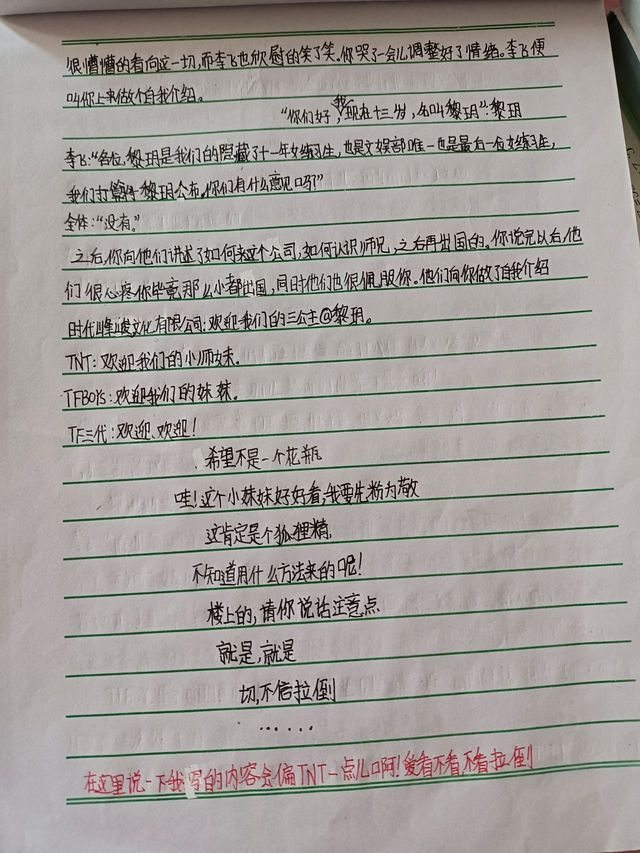 很懵懵的看向这一切,而李飞也欣慰的笑了笑。你哭了一会儿调整好了情绪。李飞便
叫你上来做个自我介绍。
"你们好,我现在十三岁,名叫黎玥":黎玥
李飞:"各位,黎玥是我们的隐藏了十一年女练习生,也是文娱部唯一也是最后一位女练习生,
我们打算将黎玥公布。你们有什么意见吗?"
全体:"没有。"
之后,你向他们讲述了如何来这个公司,如何认识师兄,之后再出国的。你说完以后,他
们很心疼你毕竟那么小都出国,同时他们也很佩服你。他们向你做了自我介绍
时代峰峻文化有限公司:欢迎我们的三公主@黎玥。
TNT:欢迎我们的小师妹。
TFBOYS:欢迎我们的妹妹。
TF三代:欢迎、欢迎!
希望不是一个花瓶
哇!这个小妹妹好好看,我要先粉为敬
这肯定是个狐狸精,
不知道用什么方法来的呢!
楼上的,请你说话注意点
就是,就是
切,不信拉倒
……
在这里说一下我写的内容会偏TNT一点儿啊!爱看不看,不看拉倒